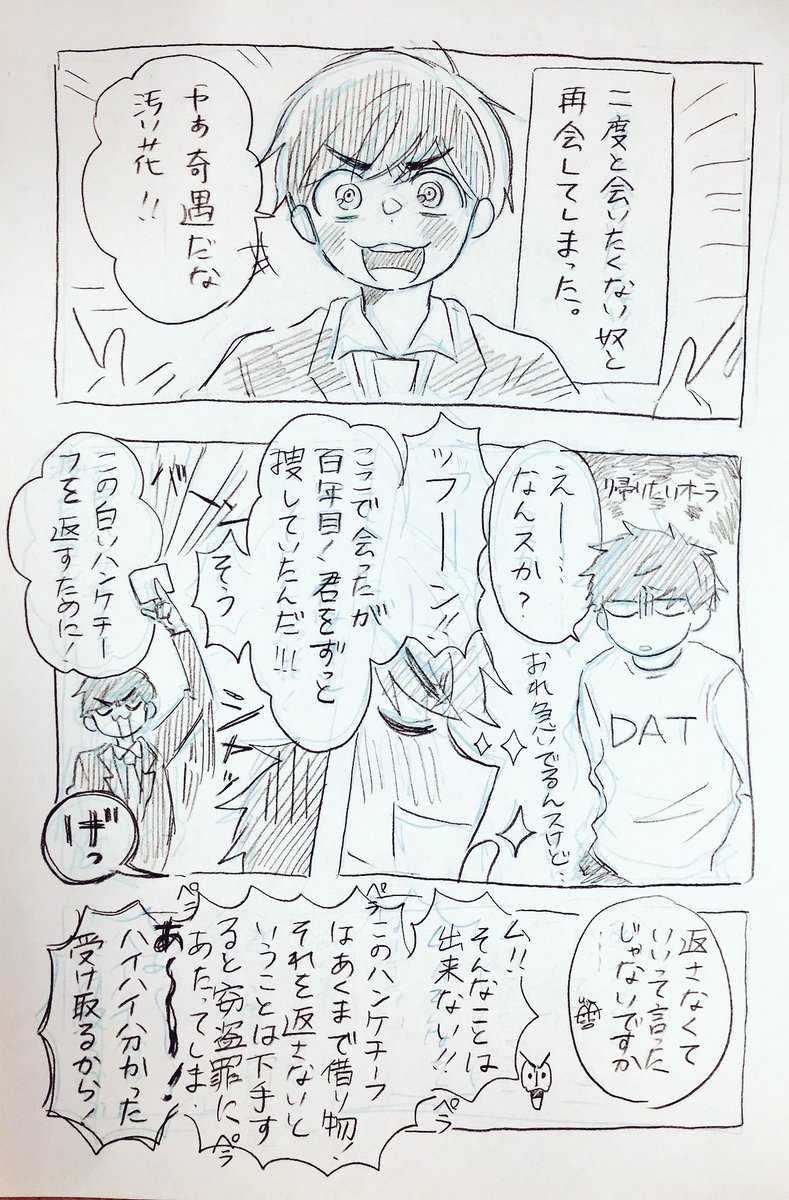 二度と会いたくない奴と
再会してしまった。
やぁ奇遇だな
汚い花!!
帰りたいオーラ
えー…
なんスか?
おれ急いでるんスけど…
DAT
ッフーン!!
ここで会ったが
百年目!君をずっと
捜していたんだ!!!
そう
バーン
この白いハンケチー
フを返すために!
げっ
返さなくて
いいって言った
じゃないですか
ム!!
そんなことは
出来ない!!
ペラ
このハンケチーフ
はあくまで借り物!
それを返さないと
いうことは下手す
ると窃盗罪に
あたってしま
ペラ
ペラ
ペラ
あ〜〜!
ハイハイ分かった
受け取るから!